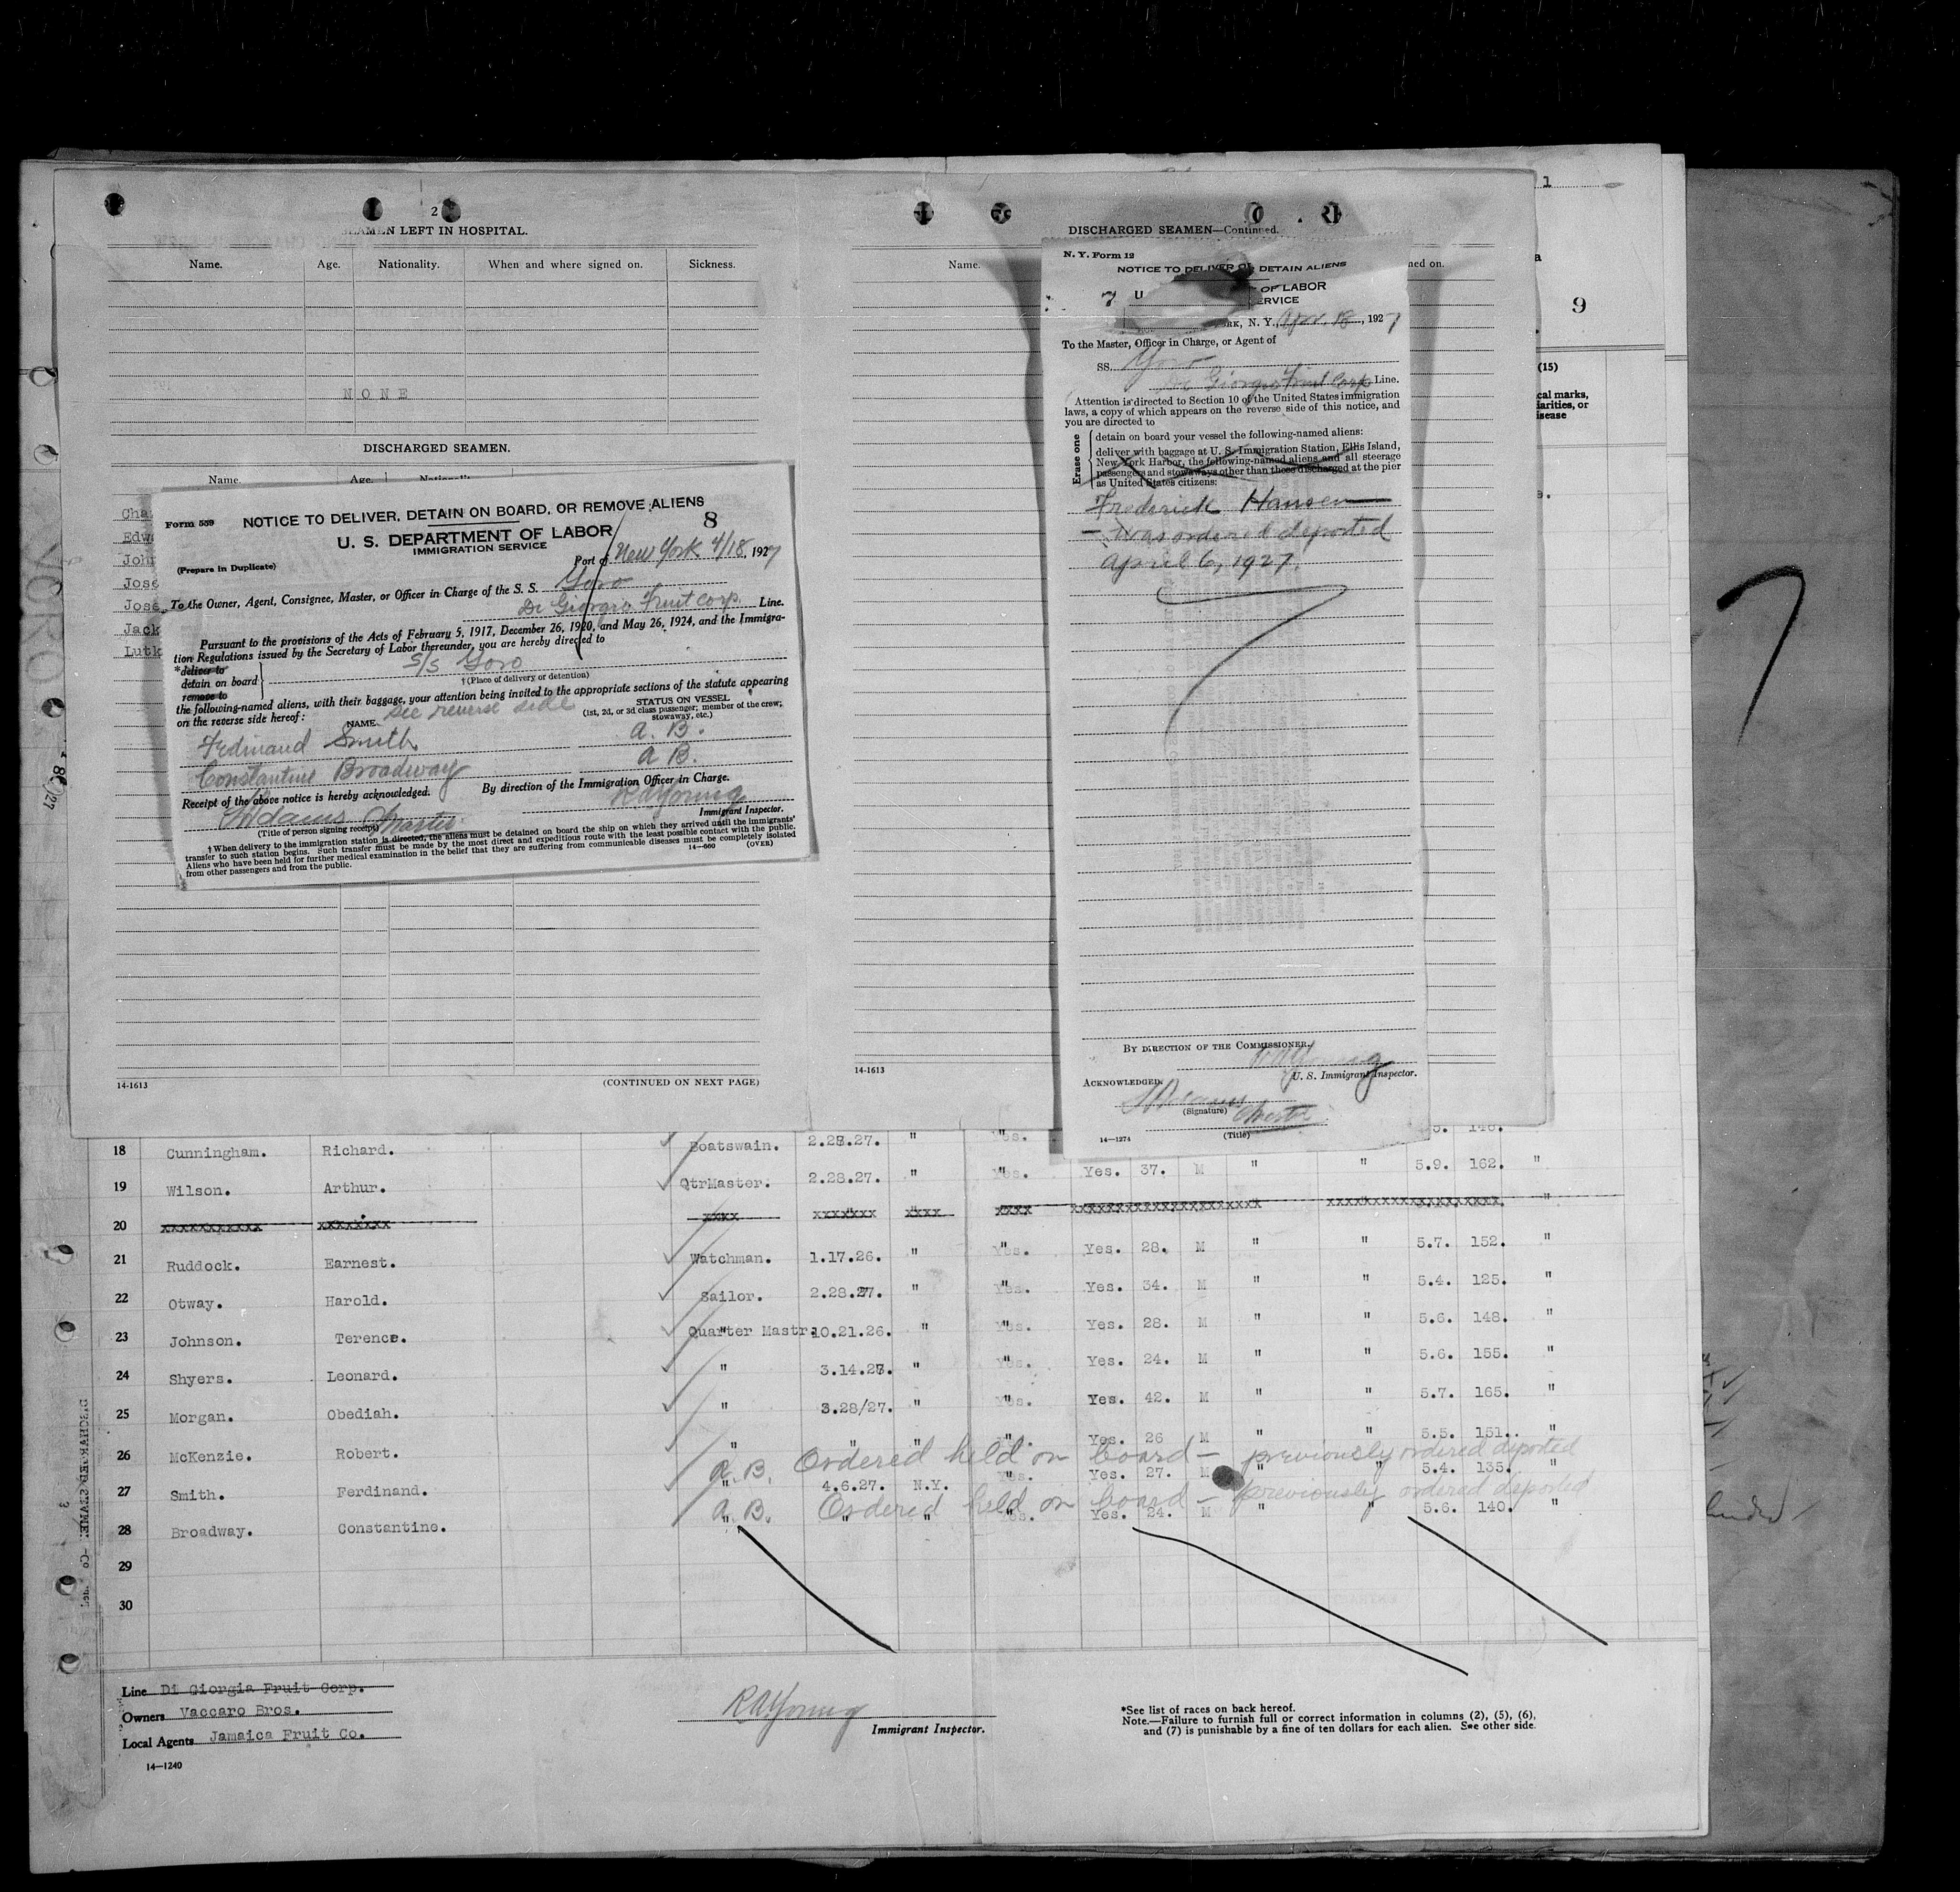 2
SEAMEN LEFT IN HOSPITAL.
Name. Age. Nationality. When and where signed on. Sickness.
NONE
DISCHARGED SEAMEN.
Name. Age.
Cha
Edw
John
Jose
Jose
Jack
Lutk
Form 559
NOTICE TO DELIVER, DETAIN ON BOARD, OR REMOVE ALIENS
8
U. S. DEPARTMENT OF LABOR
IMMIGRATION SERVICE
(Prepare in Duplicate)
Port of New York 4/18, 1927
To the Owner, Agent, Consignee, Master, or Officer in Charge of the S. S. Yoro
Di Giorgio Fruit Corp. Line.
Pursuant to the provisions of the Acts of February 5, 1917, December 26, 1920, and May 26, 1924, and the Immigra-
tion Regulations issued by the Secretary of Labor thereunder, you are hereby directed to
*deliver to
detain on board
remove to
S/S Yoro
†(Place of delivery or detention)
the following-named aliens, with their baggage, your attention being invited to the appropriate sections of the statute appearing
on the reverse side hereof: see reverse side
NAME
STATUS ON VESSEL
(1st, 2d, or 3d class passenger; member of the crew;
stowaway, etc.)
Ferdinand Smith A. B.
Constantine Broadway A B.
Receipt of the above notice is hereby acknowledged.
By direction of the Immigration Officer in Charge.
RAYoung
Immigrant Inspector.
Adams Master
(Title of person signing receipt)
†When delivery to the immigration station is directed, the aliens must be detained on board the ship on which they arrived until the immigrants'
transfer to such station begins. Such transfer must be made by the most direct and expeditious route with the least possible contact with the public.
Aliens who have been held for further medical examination in the belief that they are suffering from communicable diseases must be completely isolated
from other passengers and from the public.
14—660 (OVER)
14-1613
(CONTINUED ON NEXT PAGE)
DISCHARGED SEAMEN—Continued.
Name.
ned on.
14-1613
N. Y. Form 12
NOTICE TO DELIVER OR DETAIN ALIENS
7 U OF LABOR
ERVICE
RK, N. Y., Apr. 18, 1927
To the Master, Officer in Charge, or Agent of
SS. Yoro
Di Giorgio Fruit Corp Line.
Attention is directed to Section 10 of the United States immigration
laws, a copy of which appears on the reverse side of this notice, and
you are directed to
Erase one
detain on board your vessel the following-named aliens:
deliver with baggage at U. S. Immigration Station, Ellis Island,
New York Harbor, the following-named aliens and all steerage
passengers and stowaways other than those discharged at the pier
as United States citizens:
Frederick Hansen
— was ordered deported
April 6, 1927.
BY DIRECTION OF THE COMMISSIONER.
RAYoung
U. S. Immigrant Inspector.
ACKNOWLEDGED:
Adams
(Signature) Master
14—1274 (Title)
1
a
9
(15)
cal marks,
iarities, or
isease
7
18 Cunningham. Richard. Boatswain. 2.28.27. " " Yes.
19 Wilson. Arthur. QtrMaster. 2.28.27. " " Yes. Yes. 37. M " " 5.9. 162. "
20 xxxxxxxxxxx xxxxxxxx xxxx xxxxxxx xxxx xxxx xxxxxxxxxxxxxxxxxxxxxx xxxxxxxxxxxxxxxxxxxx "
21 Ruddock. Earnest. Watchman. 1.17.26. " " Yes. Yes. 28. M " " 5.7. 152. "
22 Otway. Harold. Sailor. 2.28.27. " " Yes. Yes. 34. M " " 5.4. 125. "
23 Johnson. Terence. Quarter Mastr. 10.21.26. " " Yes. Yes. 28. M " " 5.6. 148. "
24 Shyers. Leonard. " 3.14.27. " " Yes. Yes. 24. M " " 5.6. 155. "
25 Morgan. Obediah. " 3.28/27. " " Yes. Yes. 42. M " " 5.7. 165. "
26 McKenzie. Robert. " " " " Yes. 26 M " " 5.5. 151. "
A. B. Ordered held on board — previously ordered deported
27 Smith. Ferdinand. " 4.6.27. N.Y. Yes. Yes. 27. M " " 5.4. 135. "
A. B. Ordered held on board — previously ordered deported
28 Broadway. Constantine. " " " Yes. Yes. 24. M " " 5.6. 140. "
29
30
Line Di Giorgia Fruit Corp.
Owners Vaccaro Bros.
Local Agents Jamaica Fruit Co.
14—1240
RAYoung
Immigrant Inspector.
*See list of races on back hereof.
Note.—Failure to furnish full or correct information in columns (2), (5), (6),
and (7) is punishable by a fine of ten dollars for each alien. See other side.